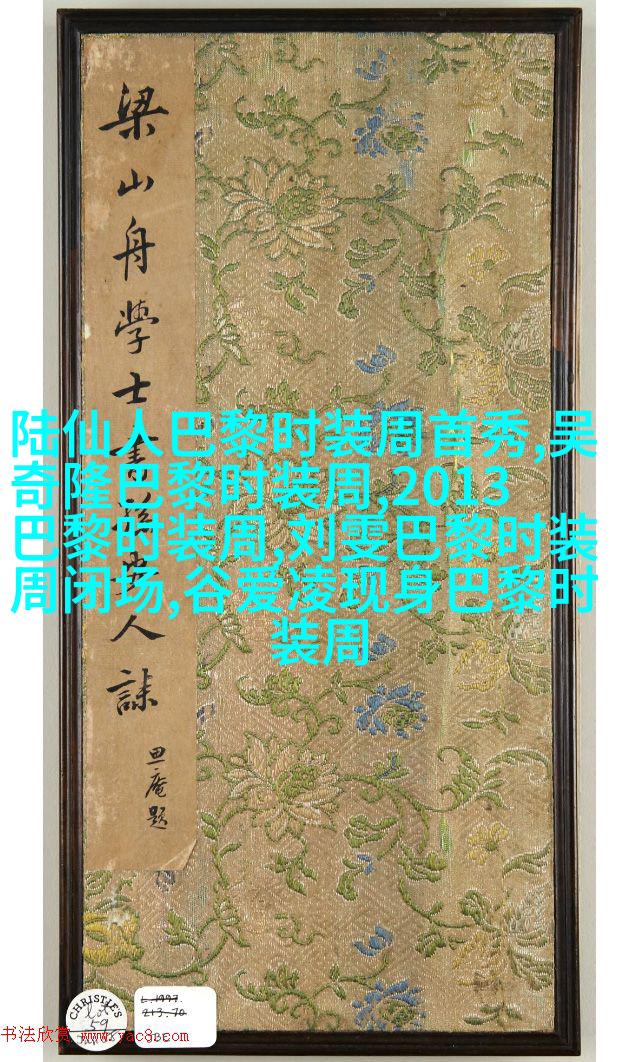 梁山舟學士書蘇安人誄
思庵題
陆仙人巴黎时装周首秀,吴
奇隆巴黎时装周,2013
巴黎时装周,刘雯巴黎时装
周闭场,谷爱凌现身巴黎时
装周
CHRISTIE'S
lot
59
L.1997.
213.70
书法欣赏 www.yac8.com